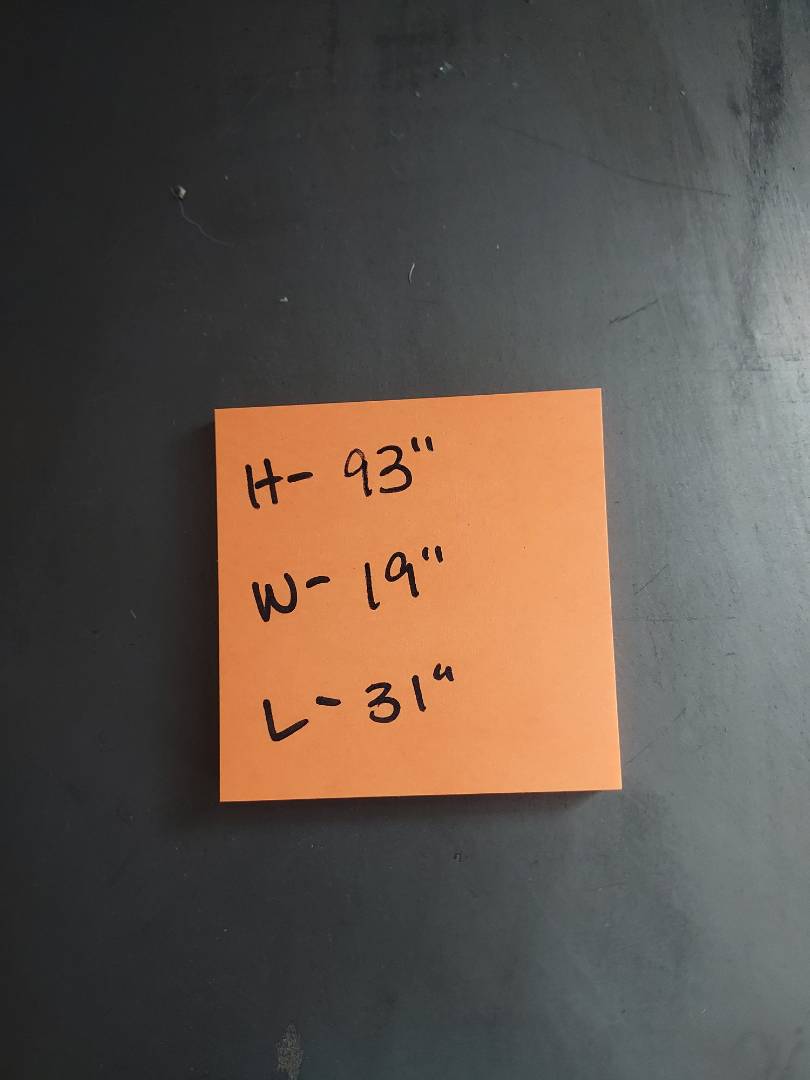 H- 93"
W- 19"
L- 31"